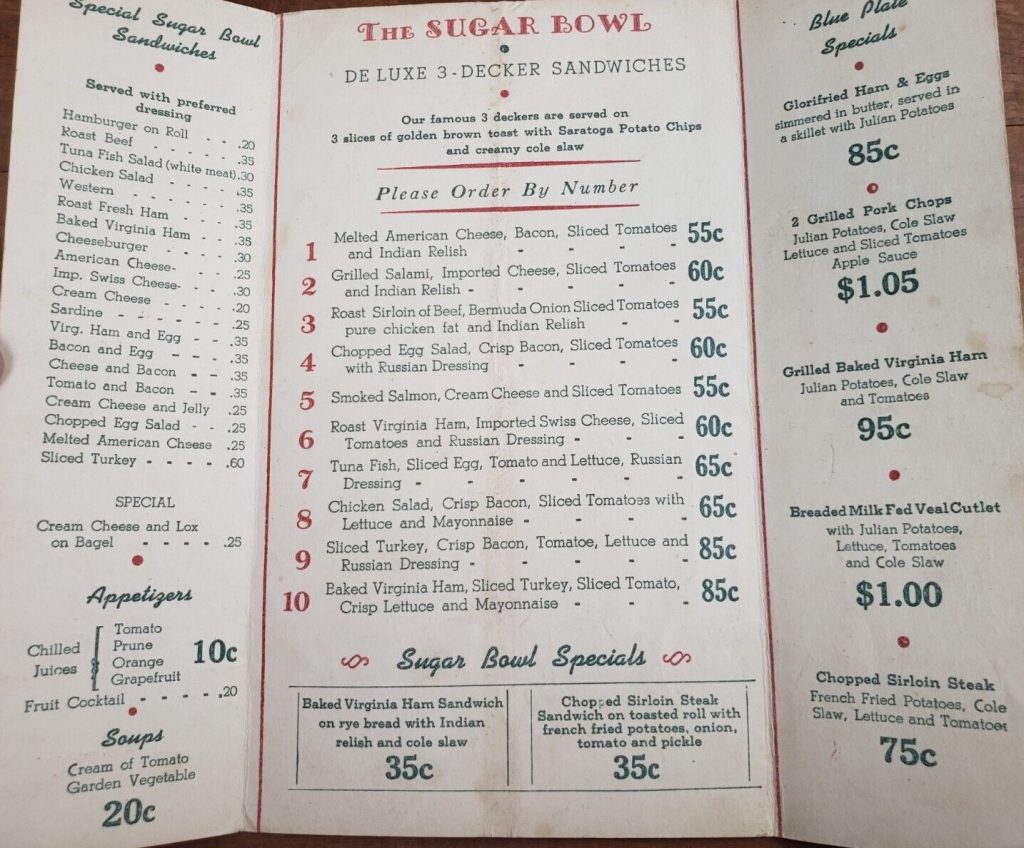 Special Sugar Bowl
Sandwiches
Served with preferred
dressing
Hamburger on Roll - - .20
Roast Beef - - - - - .35
Tuna Fish Salad (white meat) .30
Chicken Salad - - - - .35
Western - - - - - .35
Roast Fresh Ham - - - .35
Baked Virginia Ham - - .35
Cheeseburger - - - - .30
American Cheese- - - .25
Imp. Swiss Cheese- - - .30
Cream Cheese - - - - .20
Sardine - - - - - - .25
Virg. Ham and Egg - - .35
Bacon and Egg - - - .35
Cheese and Bacon - - .35
Tomato and Bacon - - .35
Cream Cheese and Jelly .25
Chopped Egg Salad - - .25
Melted American Cheese .25
Sliced Turkey - - - - .60
SPECIAL
Cream Cheese and Lox
on Bagel - - - - .25
Appetizers
Chilled
Juices
Tomato
Prune
Orange
Grapefruit
10c
Fruit Cocktail - - - - .20
Soups
Cream of Tomato
Garden Vegetable
20c
THE SUGAR BOWL
DE LUXE 3-DECKER SANDWICHES
Our famous 3 deckers are served on
3 slices of golden brown toast with Saratoga Potato Chips
and creamy cole slaw
Please Order By Number
1 Melted American Cheese, Bacon, Sliced Tomatoes 55c
and Indian Relish - - - -
2 Grilled Salami, Imported Cheese, Sliced Tomatoes 60c
and Indian Relish - - - - -
3 Roast Sirloin of Beef, Bermuda Onion Sliced Tomatoes 55c
pure chicken fat and Indian Relish - -
4 Chopped Egg Salad, Crisp Bacon, Sliced Tomatoes 60c
with Russian Dressing - - - -
5 Smoked Salmon, Cream Cheese and Sliced Tomatoes 55c
6 Roast Virginia Ham, Imported Swiss Cheese, Sliced 60c
Tomatoes and Russian Dressing - - -
7 Tuna Fish, Sliced Egg, Tomato and Lettuce, Russian 65c
Dressing - - - - - -
8 Chicken Salad, Crisp Bacon, Sliced Tomatoes with 65c
Lettuce and Mayonnaise - - - -
9 Sliced Turkey, Crisp Bacon, Tomatoe, Lettuce and 85c
Russian Dressing - - - - -
10 Baked Virginia Ham, Sliced Turkey, Sliced Tomato, 85c
Crisp Lettuce and Mayonnaise - - -
Sugar Bowl Specials
Baked Virginia Ham Sandwich
on rye bread with Indian
relish and cole slaw
35c
Chopped Sirloin Steak
Sandwich on toasted roll with
french fried potatoes, onion,
tomato and pickle
35c
Blue Plate
Specials
Glorifried Ham & Eggs
simmered in butter, served in
a skillet with Julian Potatoes
85c
2 Grilled Pork Chops
Julian Potatoes, Cole Slaw
Lettuce and Sliced Tomatoes
Apple Sauce
$1.05
Grilled Baked Virginia Ham
Julian Potatoes, Cole Slaw
and Tomatoes
95c
Breaded Milk Fed Veal Cutlet
with Julian Potatoes,
Lettuce, Tomatoes
and Cole Slaw
$1.00
Chopped Sirloin Steak
French Fried Potatoes, Cole
Slaw, Lettuce and Tomatoes
75c